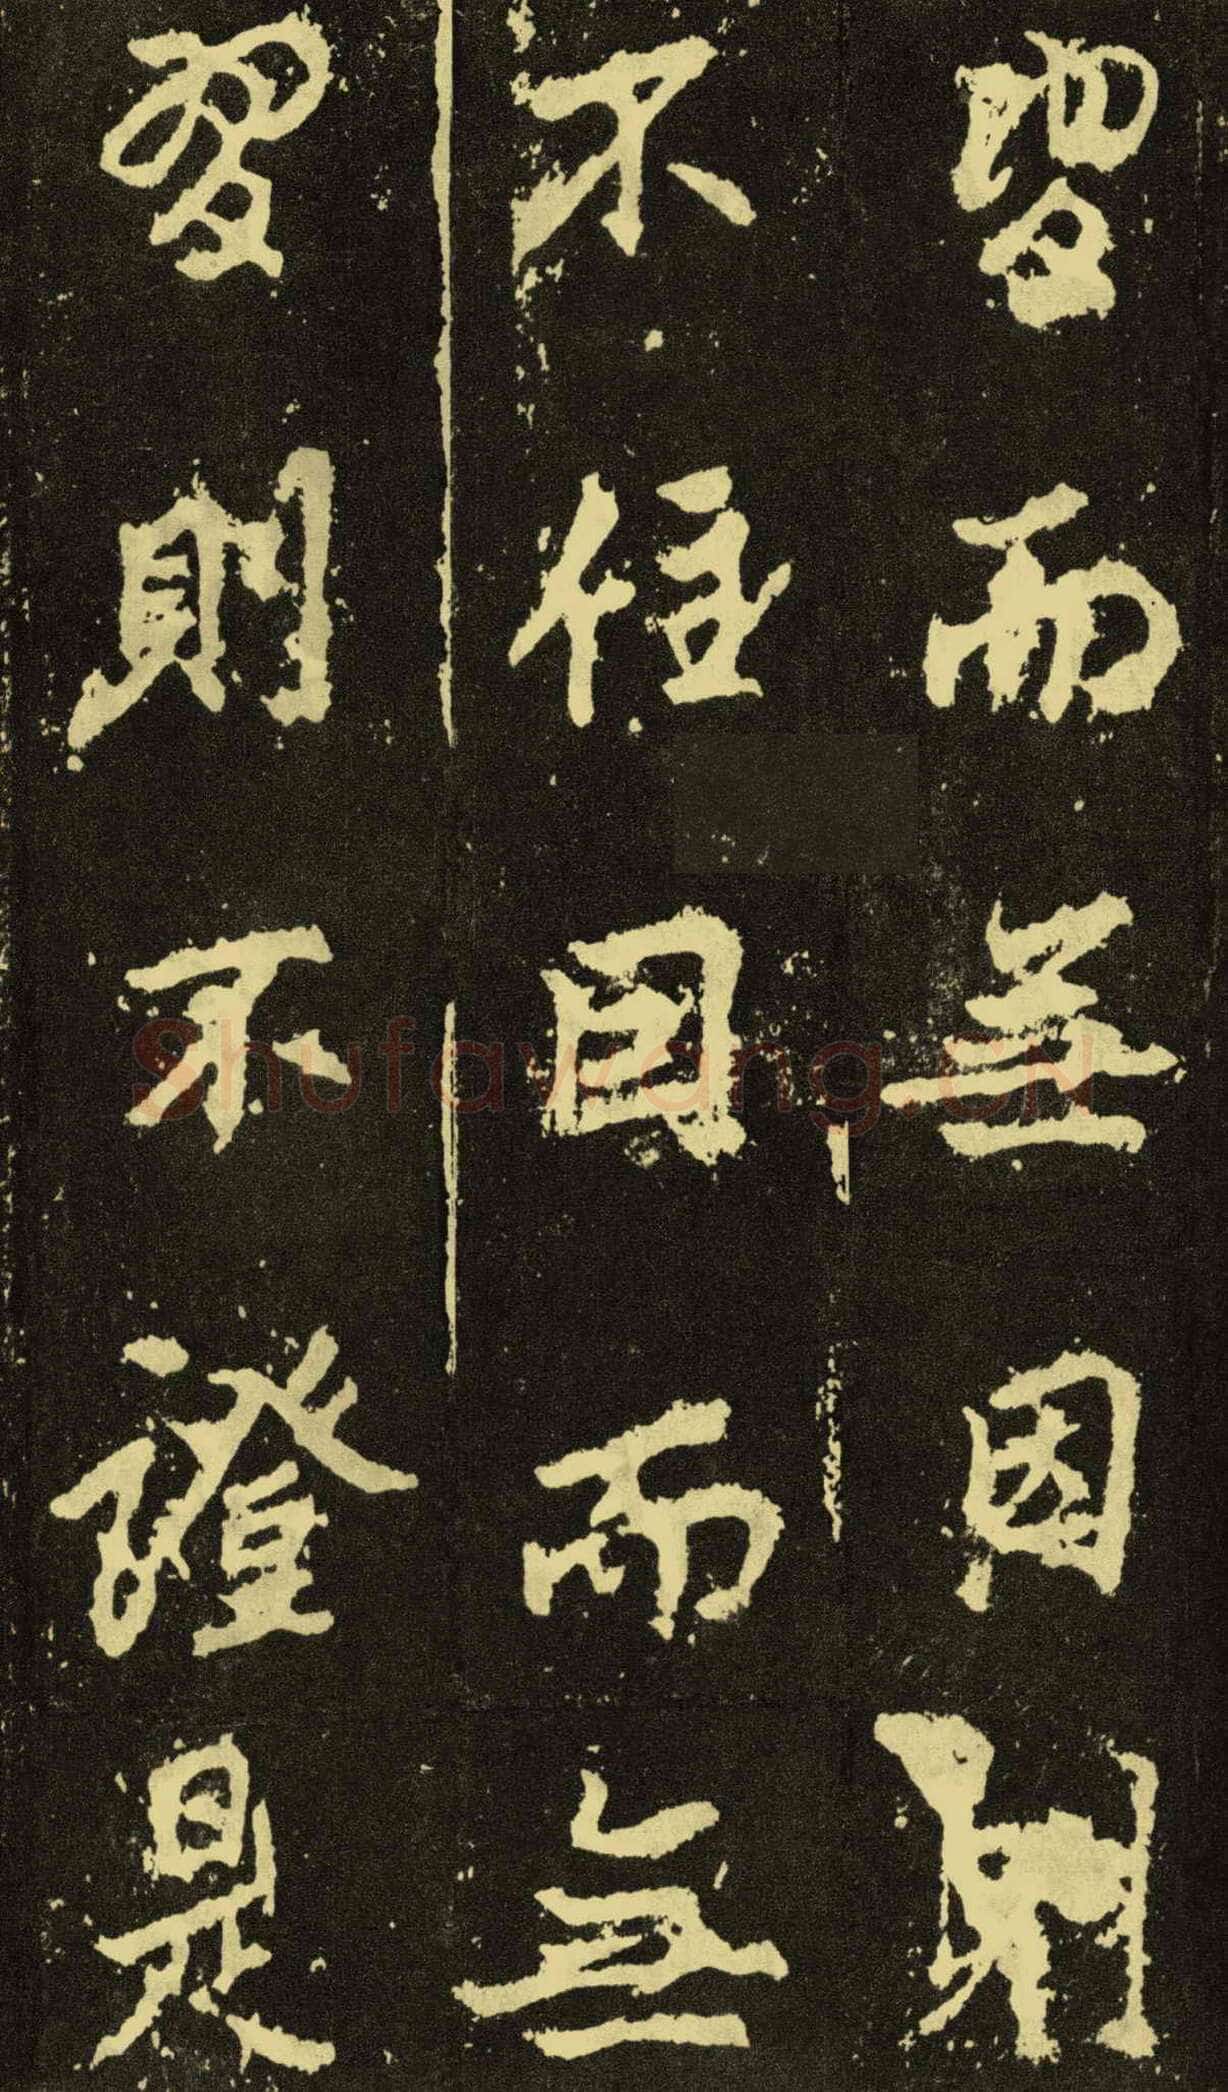 習而無因則
不住因而無
習則不證是
Shufawang.CN